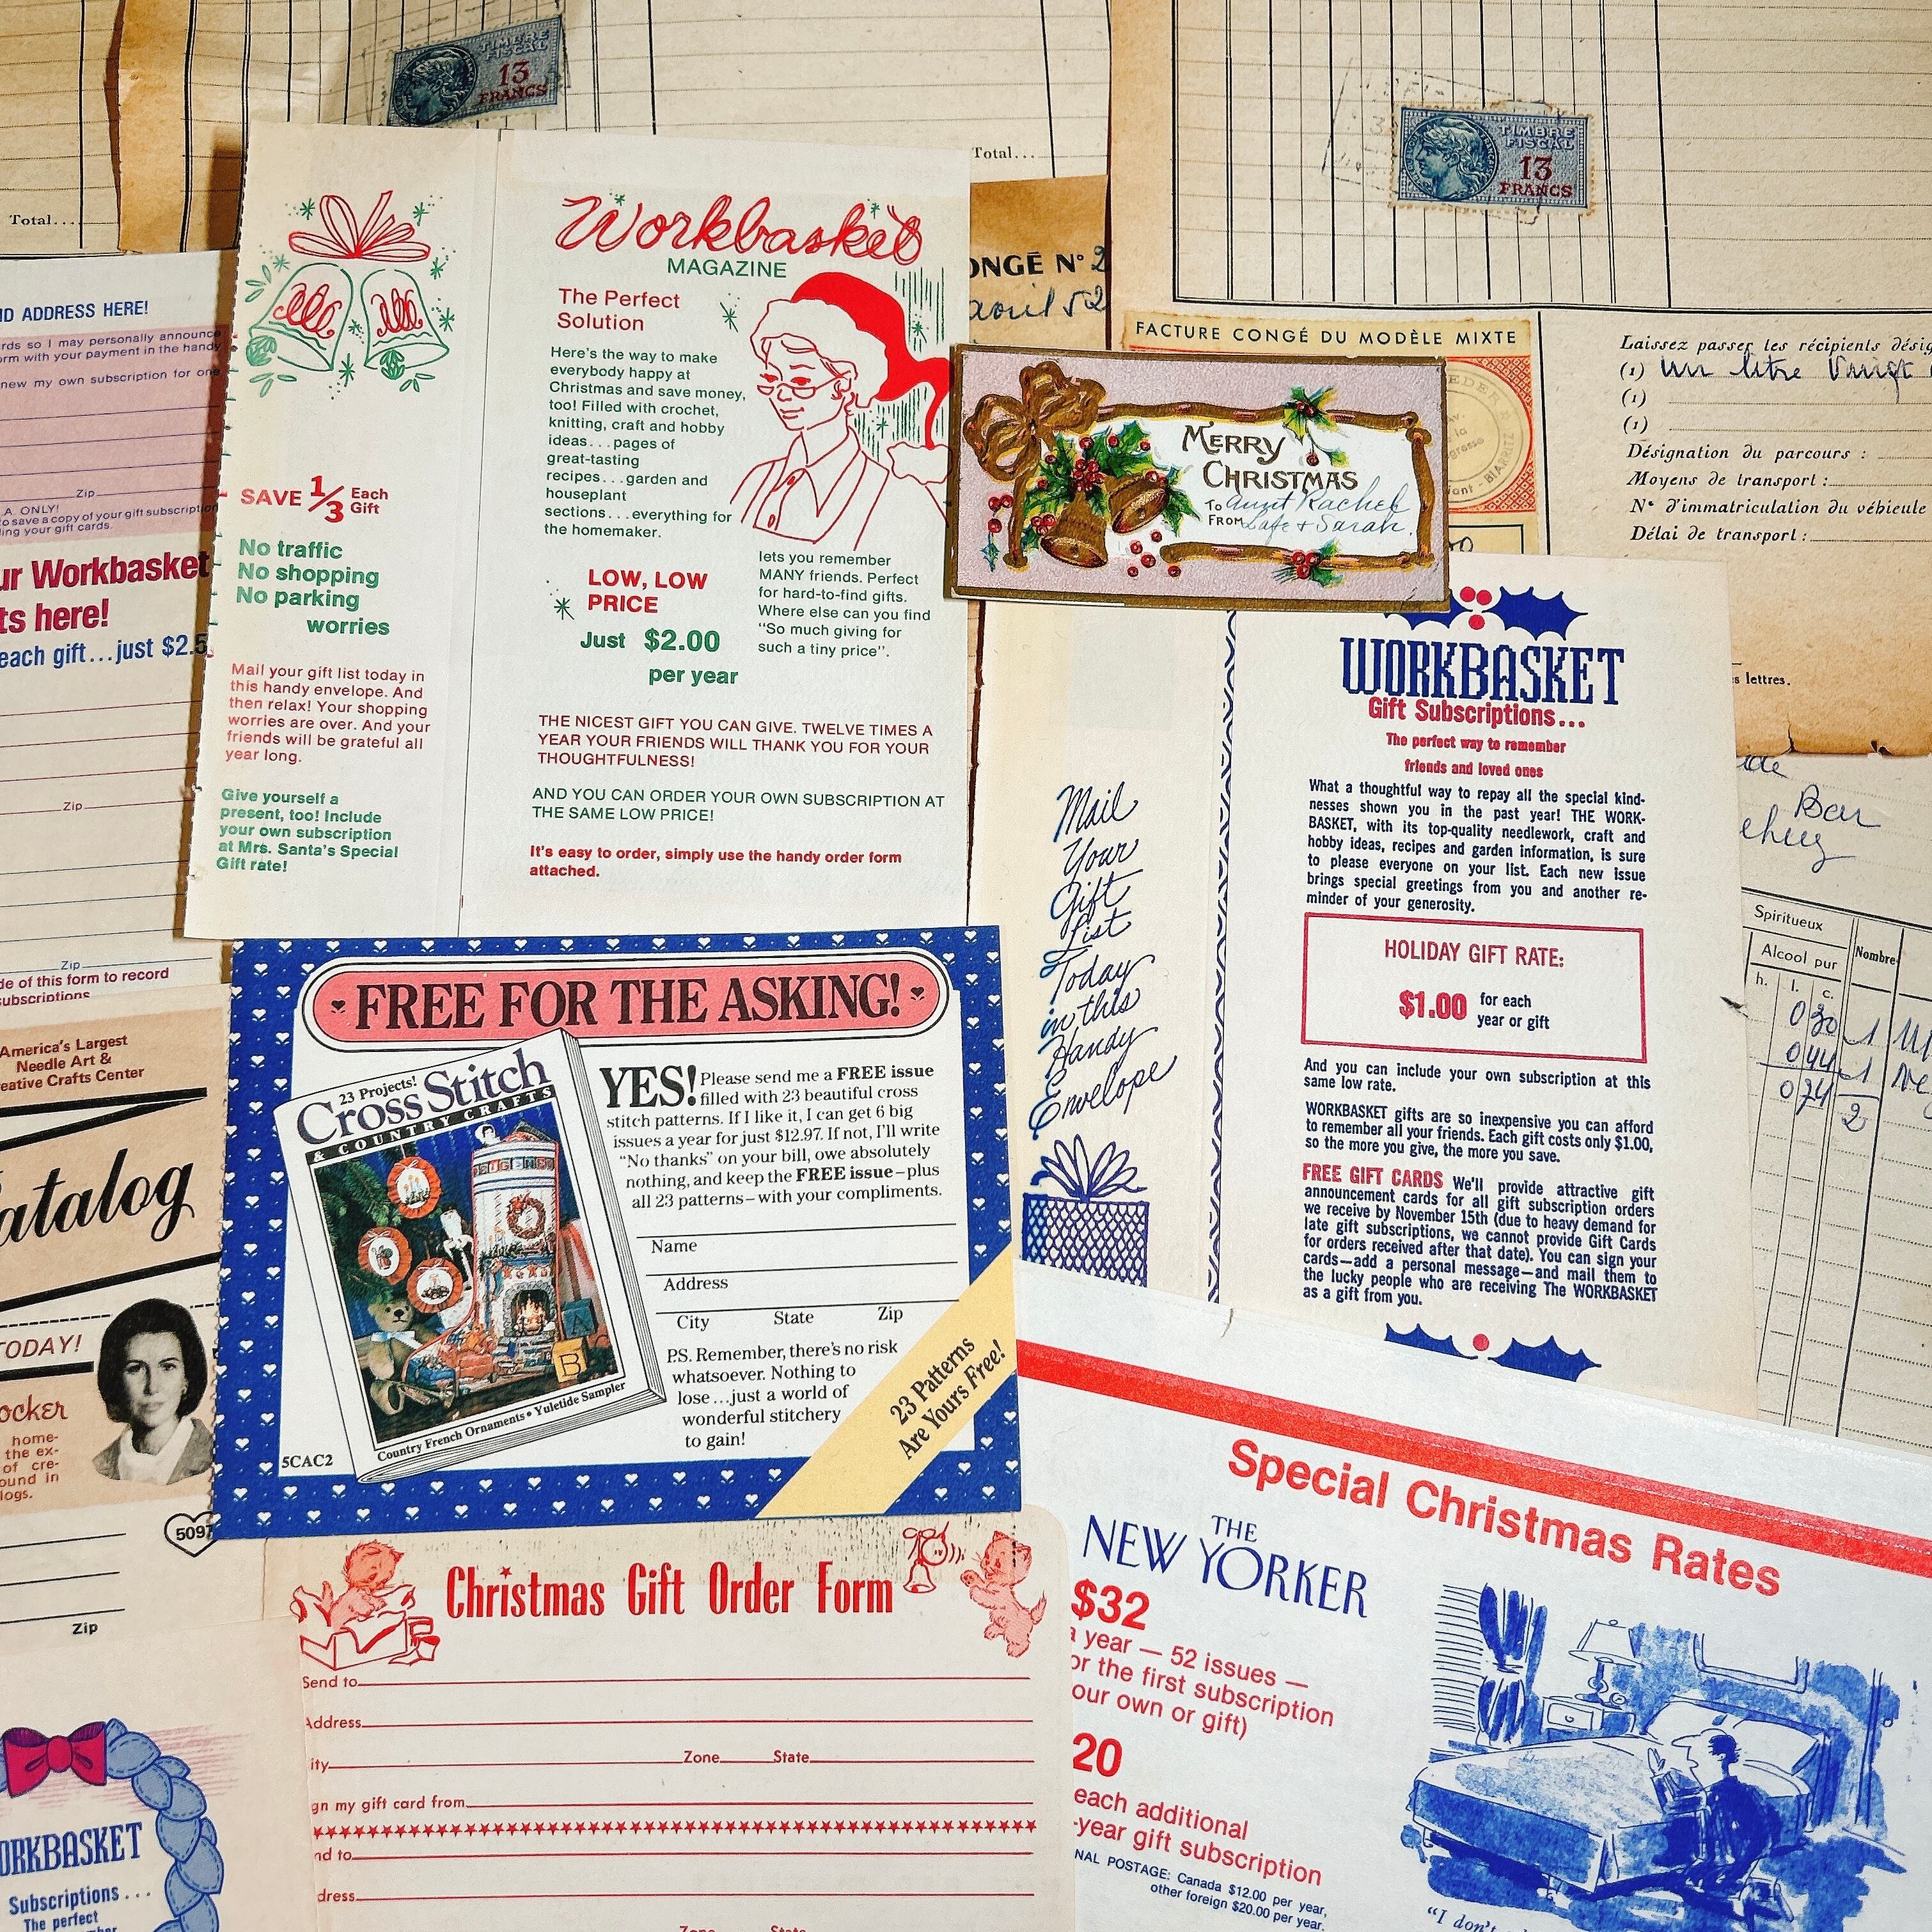 TIMBRE
FISCAL
13
FRANCS
TIMBRE
FISCAL
13
FRANCS
Total...
Total....
ONGÉ N° 2
avril 52
FACTURE CONGÉ DU MODÈLE MIXTE
BIARRITZ
Laissez passer les récipients désig
(1) un litre Vingt
(1)
(1)
Désignation du parcours :
Moyens de transport :
N° d'immatriculation du véhicule
Délai de transport :
s lettres.
Bar
Spiritueux
Alcool pur
Nombre
h. l. c.
0 30 1
0 44 1
0 74 2
ND ADDRESS HERE!
rds so I may personally announce
orm with your payment in the handy
new my own subscription for one
Zip
A. ONLY!
to save a copy of your gift subscription
ling your gift cards.
ur Workbasket
ts here!
each gift...just $2.5
Zip
Zip
de of this form to record
subscriptions.
Workbasket
MAGAZINE
The Perfect
Solution
Here's the way to make
everybody happy at
Christmas and save money,
too! Filled with crochet,
knitting, craft and hobby
ideas...pages of
great-tasting
recipes...garden and
houseplant
sections...everything for
the homemaker.
LOW, LOW
PRICE
Just $2.00
per year
lets you remember
MANY friends. Perfect
for hard-to-find gifts.
Where else can you find
"So much giving for
such a tiny price".
THE NICEST GIFT YOU CAN GIVE. TWELVE TIMES A
YEAR YOUR FRIENDS WILL THANK YOU FOR YOUR
THOUGHTFULNESS!
AND YOU CAN ORDER YOUR OWN SUBSCRIPTION AT
THE SAME LOW PRICE!
It's easy to order, simply use the handy order form
attached.
SAVE 1/3 Each
Gift
No traffic
No shopping
No parking
worries
Mail your gift list today in
this handy envelope. And
then relax! Your shopping
worries are over. And your
friends will be grateful all
year long.
Give yourself a
present, too! Include
your own subscription
at Mrs. Santa's Special
Gift rate!
MERRY
CHRISTMAS
TO Aunt Rachel
FROM Lafe + Sarah.
WORKBASKET
Gift Subscriptions...
The perfect way to remember
friends and loved ones
What a thoughtful way to repay all the special kind-
nesses shown you in the past year! THE WORK-
BASKET, with its top-quality needlework, craft and
hobby ideas, recipes and garden information, is sure
to please everyone on your list. Each new issue
brings special greetings from you and another re-
minder of your generosity.
HOLIDAY GIFT RATE:
$1.00 for each
year or gift
And you can include your own subscription at this
same low rate.
WORKBASKET gifts are so inexpensive you can afford
to remember all your friends. Each gift costs only $1.00,
so the more you give, the more you save.
FREE GIFT CARDS We'll provide attractive gift
announcement cards for all gift subscription orders
we receive by November 15th (due to heavy demand for
late gift subscriptions, we cannot provide Gift Cards
for orders received after that date). You can sign your
cards—add a personal message—and mail them to
the lucky people who are receiving The WORKBASKET
as a gift from you.
Mail
Your
Gift
List
Today
in this
Handy
Envelope
FREE FOR THE ASKING!
23 Projects!
Cross Stitch
& COUNTRY CRAFTS
A
B
Country French Ornaments • Yuletide Sampler
YES! Please send me a FREE issue
filled with 23 beautiful cross
stitch patterns. If I like it, I can get 6 big
issues a year for just $12.97. If not, I'll write
"No thanks" on your bill, owe absolutely
nothing, and keep the FREE issue–plus
all 23 patterns–with your compliments.
Name
Address
City State Zip
P.S. Remember, there's no risk
whatsoever. Nothing to
lose...just a world of
wonderful stitchery
to gain!
23 Patterns
Are Yours Free!
5CAC2
America's Largest
Needle Art &
eative Crafts Center
atalog
TODAY!
ocker
home-
the ex-
of cre-
ound in
logs.
5097
Zip
ORKBASKET
Subscriptions...
The perfect
Christmas Gift Order Form
Send to
Address
ity Zone State
gn my gift card from
nd to
dress
Zone State
Special Christmas Rates
THE
NEW YORKER
$32
a year — 52 issues —
or the first subscription
our own or gift)
20
each additional
-year gift subscription
NAL POSTAGE: Canada $12.00 per year,
other foreign $20.00 per year.
"I don't